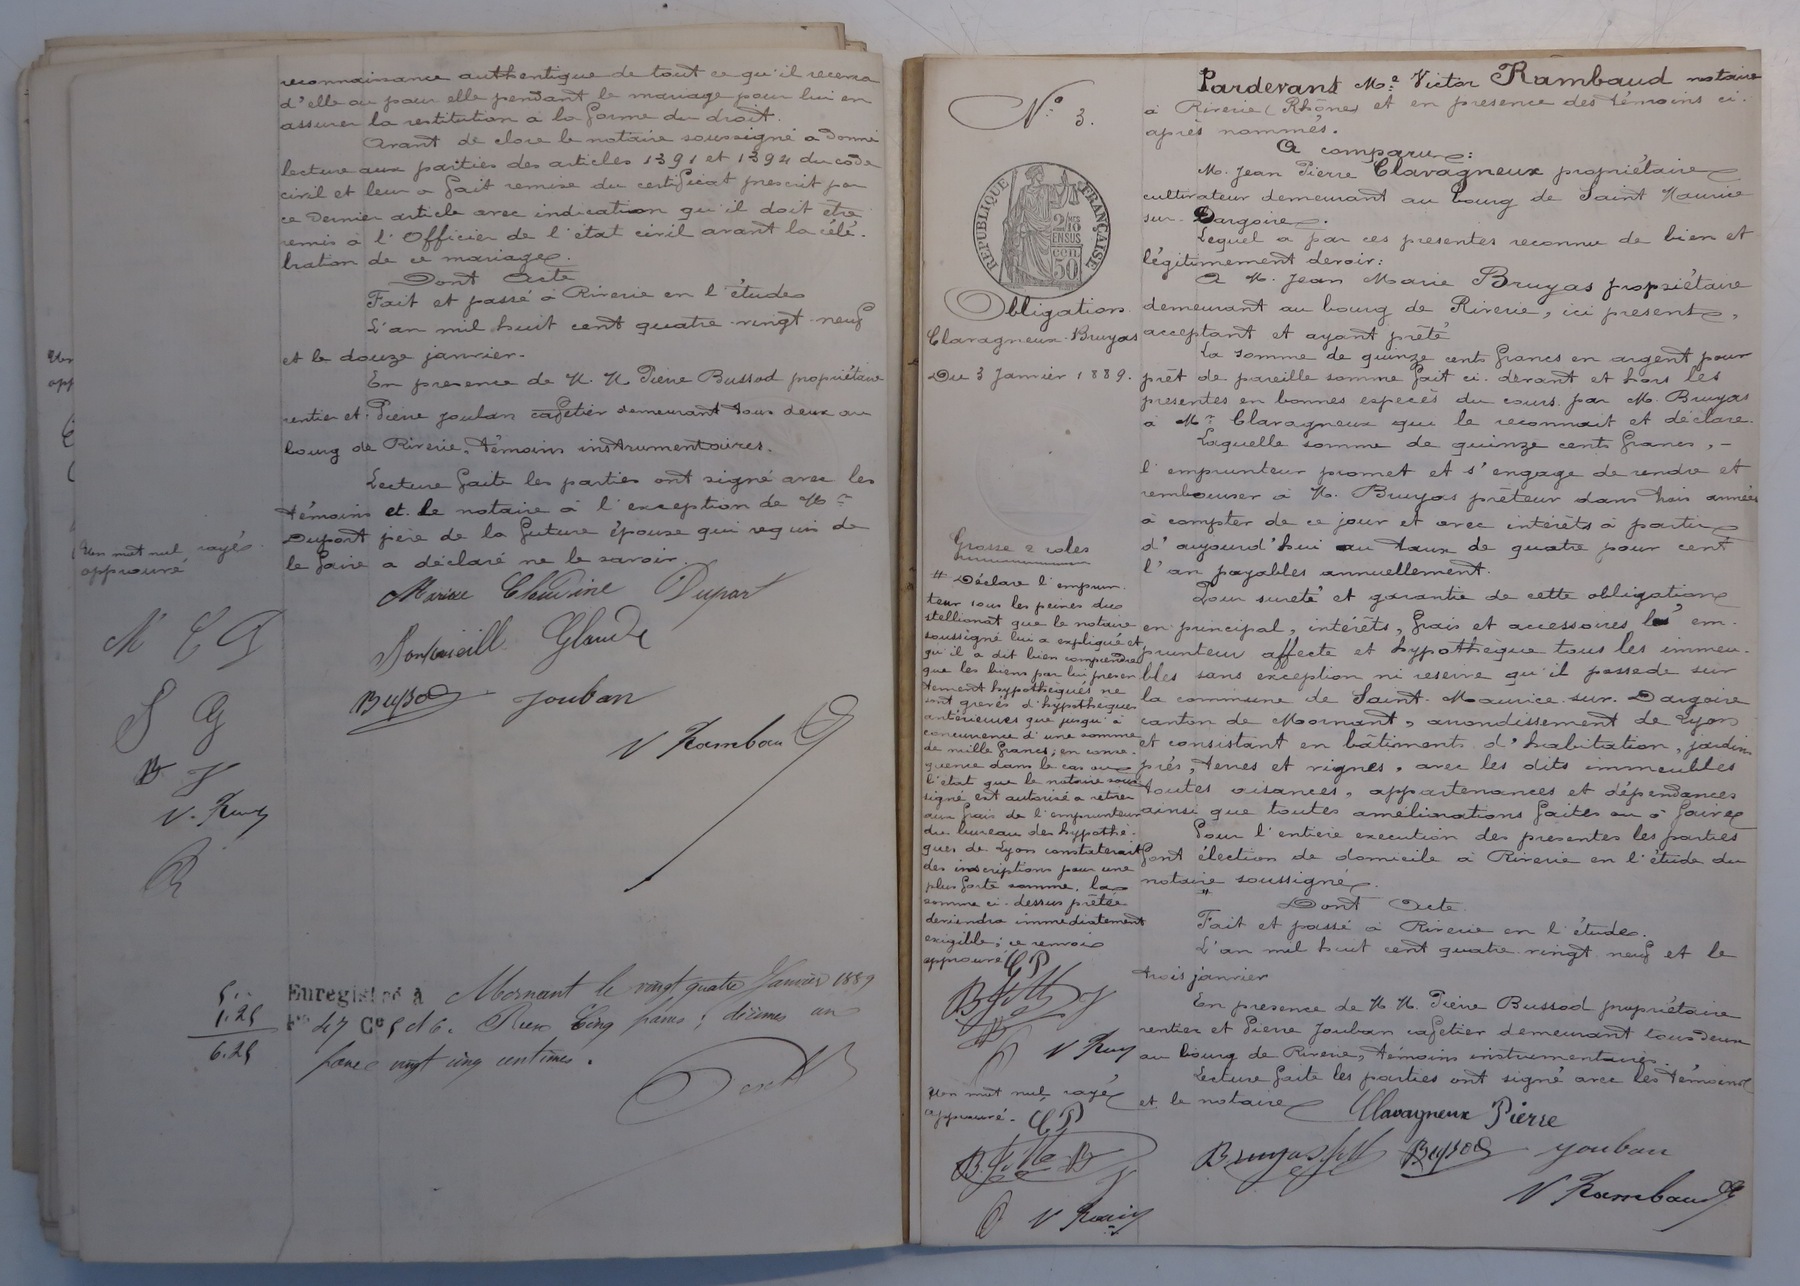 reconnaissance authentique de tout ce qu'il recevra
d'elle ou pour elle pendant le mariage pour lui en
assurer la restitution à la forme du droit.
Avant de clore le notaire soussigné a donné
lecture aux parties des articles 1391 et 1394 du code
civil et leur a fait remise du certificat prescrit par
ce dernier article avec indication qu'il doit être
remis à l'Officier de l'état civil avant la célé-
bration de ce mariage.
Dont Acte
Fait et passé à Riverie en l'étude
L'an mil huit cent quatre-vingt-neuf
et le douze janvier.
En presence de M. M. Pierre Bussod propriétaire
rentier et Pierre Jouban cafetier demeurant tous deux au
bourg de Riverie, témoins instrumentaires.
Lecture faite les parties ont signé avec les
témoins et le notaire à l'exception de Mr
Dupont père de la future épouse qui requis de
le faire a déclaré ne le savoir.
Un mot nul, rayé
approuvé
Marie Claudine Dupont
Glaude
Bussod Jouban
V Rambaud
M C D
G
B J
V. Ram
Enregistré à Mornant le vingt quatre Janvier 1889
Fo 47 Co 5 Reçu Cinq francs; décimes un
franc vingt cinq centimes.
5..
1.25
6.25
No 3.
RÉPUBLIQUE FRANÇAISE
2/10 EN SUS
50 cen
Obligation
Clavagneux-Bruyas
Du 3 Janvier 1889.
Grosse 2 roles
Pardevant Me Victor Rambaud notaire
à Riverie (Rhône) et en presence des témoins ci-
après nommés.
A comparu:
M. Jean Pierre Clavagneux propriétaire
cultivateur demeurant au bourg de Saint Maurice
sur-Dargoire.
Lequel a par ces presentes reconnu de bien et
légitimement devoir:
A M. Jean Marie Bruyas propriétaire
demeurant au bourg de Riverie, ici present,
acceptant et ayant prêté
La somme de quinze cents francs en argent pour
prêt de pareille somme fait ci-devant et hors les
presentes en bonnes espèces du cours par M. Bruyas
à Mr Clavagneux qui le reconnait et déclare.
Laquelle somme de quinze cents francs,-
l'emprunteur promet et s'engage de rendre et
rembourser à M. Bruyas prêteur dans trois années
à compter de ce jour et avec intérêts à partir
d'aujourd'hui au taux de quatre pour cent
l'an payables annuellement.
Pour sureté et garantie de cette obligation
en principal, intérêts, frais et accessoires l'em-
prunteur affecte et hypothèque tous les immeu-
bles sans exception ni reserve qu'il possede sur
la commune de Saint-Maurice-sur-Dargoire
canton de Mornant, arrondissement de Lyon
et consistant en bâtiments d'habitation, jardin
prés, terres et vignes, avec les dits immeubles
toutes aisances, appartenances et dépendances
ainsi que toutes améliorations faites ou à faire
Pour l'entière execution des presentes les parties
font élection de domicile à Riverie en l'étude du
notaire soussigné.
Dont Acte
Fait et passé à Riverie en l'étude.
L'an mil huit cent quatre-vingt neuf et le
trois janvier
En presence de M. M. Pierre Bussod propriétaire
rentier et Pierre Jouban cafetier demeurant tous deux
au bourg de Riverie, témoins instrumentaires.
Lecture faite les parties ont signé avec les témoins
et le notaire
Clavagneux Pierre
Bruyas Bussod Jouban
V Rambaud
# Déclare l'emprun-
teur sous les peines du
stellionat que le notaire
soussigné lui a expliqué et
qu'il a dit bien comprendre
que les biens par lui presen-
tement hypothéqués ne
sont grevés d'hypothèques
antérieures que jusqu'à
concurrence d'une somme
de mille francs; en consé-
quence dans le cas ou
l'état que le notaire sous-
signé est autorisé a retirer
aux frais de l'emprunteur
du bureau des hypothè-
ques de Lyon constaterait
des inscriptions pour une
plus forte somme, la
somme ci-dessus prêtée
deviendra immédiatement
exigible; ce renvoi
approuvé
C P
V Ram
Un mot nul, rayé
approuvé-
C P
V Ram